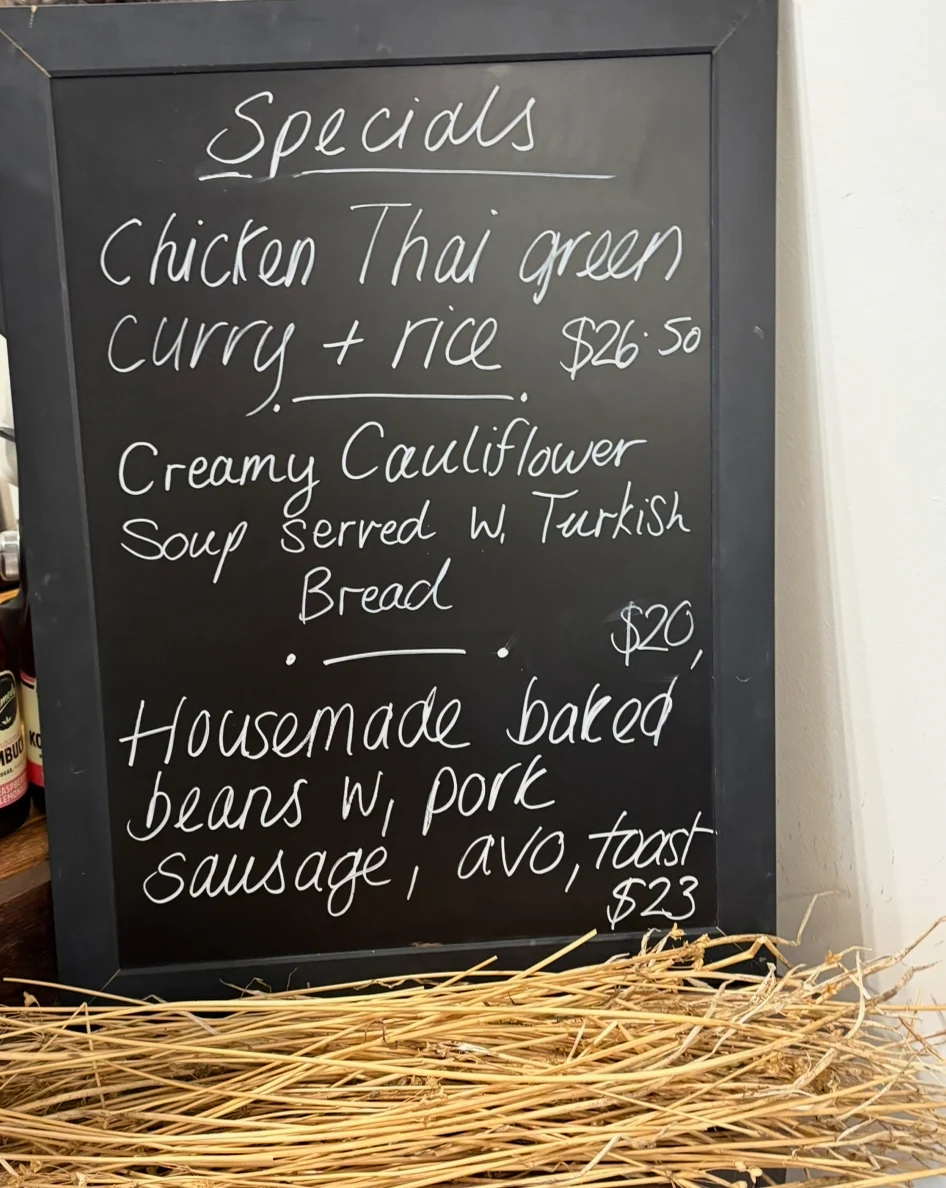 Specials
Chicken Thai green
curry + rice $26.50
Creamy Cauliflower
Soup served w, Turkish
Bread
$20,
Housemade baked
beans w, pork
sausage, avo, toast
$23